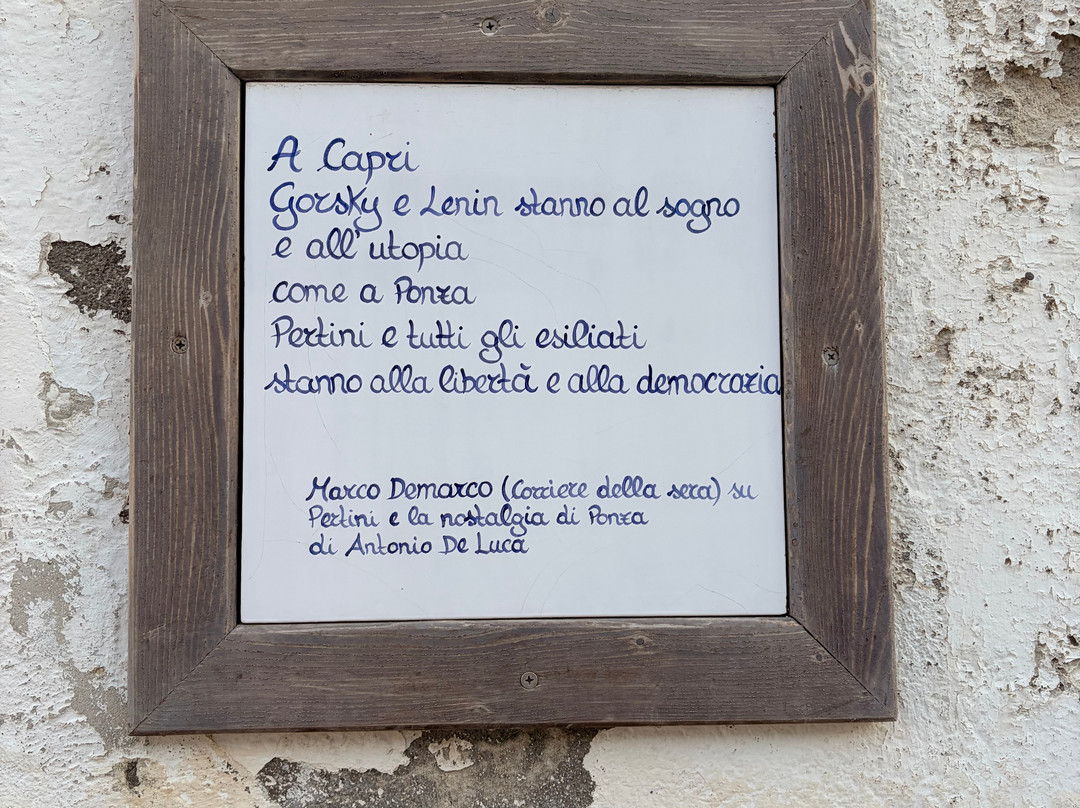 A Capri
Gorsky e Lenin stanno al sogno
e all'utopia
come a Ponza
Pertini e tutti gli esiliati
stanno alla libertà e alla democrazia
Marco Demarco (Corriere della sera) su
Pertini e la nostalgia di Ponza
di Antonio De Luca